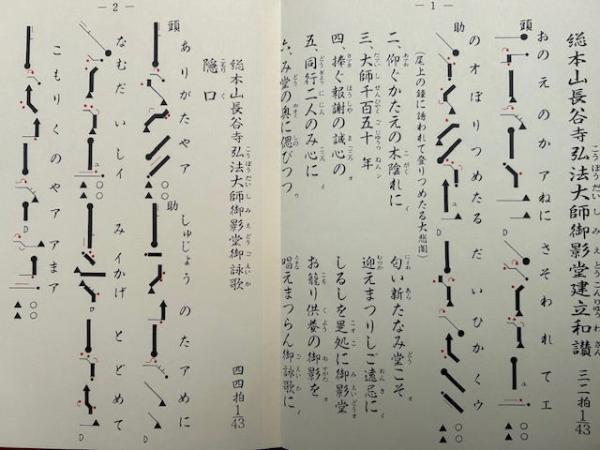 - 1 -
総本山長谷寺弘法大師御影堂建立和讃 三二拍 1/43
頭 おのえのかアねに さそわれてエ
助 のオぼりつめたる だいひかくウ
(尾上の鐘に誘われて登りつめたる大悲閣)
二、仰ぐかたえの木陰れに 匂い新たなみ堂こそ
三、大師千百五十年 迎えまつりしご遠忌に
四、捧ぐ報謝の誠心の しるしを是処に御影堂
五、同行二人のみ心に お籠り供養の御影を
六、み堂の奥に偲びつつ 唱えまつらん御詠歌に
- 2 -
総本山長谷寺弘法大師御影堂御詠歌 四四拍 1/43
隠口
頭 ありがたやア 助 しゅじょうのたアめに
なむだいしイ みイかげ とどめて
こもりくのやアアまア